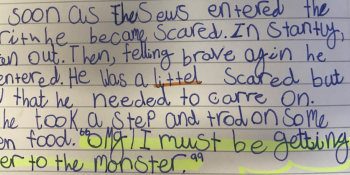 soon as TheSeus entered the
he became scared. Instantly,
out. Then, felling brave agin he
entered. He Was a littel Scared but
that he needed to carre on.
he took a step and trod on some
food. "OMG! I must be getting
er to the monster."